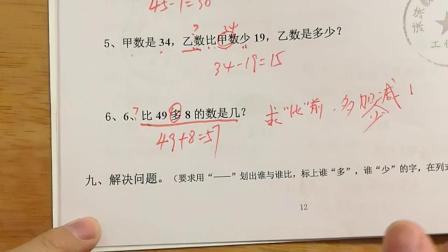 45-1=30
5、甲数是 34，乙数比甲数少 19，乙数是多少？
? 34
34-19=15
6、6、? 比 49 多 8 的数是几？
49+8=57
求"比"前，多加减少！
九、解决问题。（要求用"——"划出谁与谁比，标上谁"多"，谁"少"的字，在列式
12